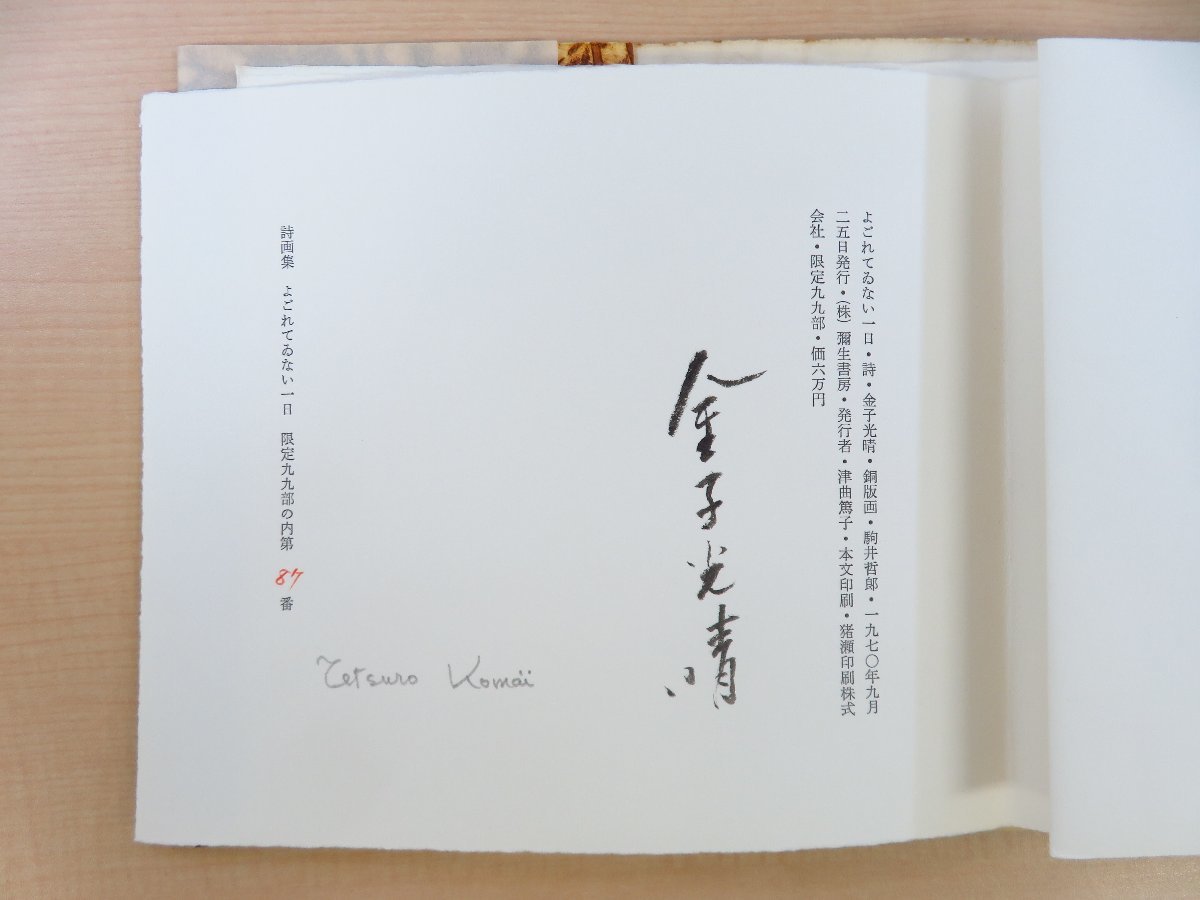 よごれてゐない一日・詩・金子光晴・銅版画・駒井哲郎・一九七〇年九月
二五日発行・(株)彌生書房・発行者・津曲篤子・本文印刷・猪瀬印刷株式
会社・限定九九部・価六万円
金子光晴
Tetsuro Komaï
詩画集 よごれてゐない一日 限定九九部の内第 87 番